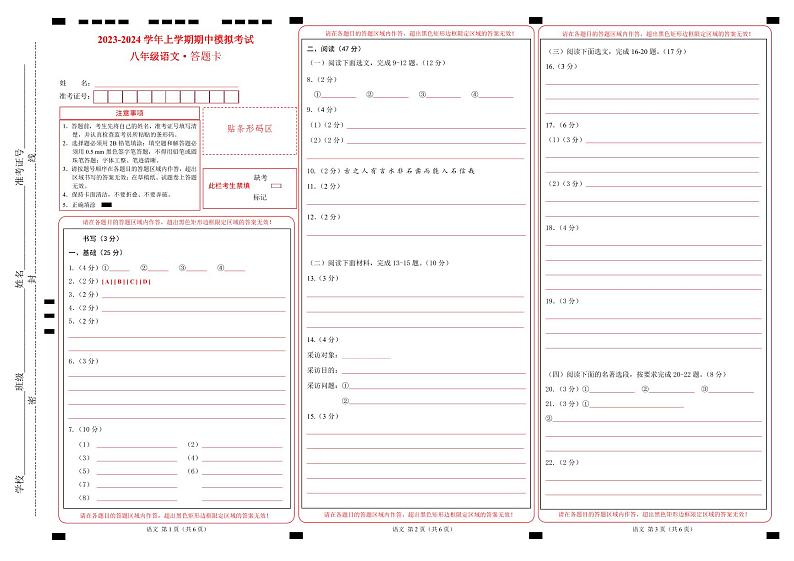 准考证号
姓名
班级
学校
线
封
密
2023-2024 学年上学期期中模拟考试
八年级语文·答题卡
姓 名:
准考证号:
注意事项
1.答题前,考生先将自己的姓名,准考证号填写清
楚,并认真检查监考员所粘贴的条形码。
2.选择题必须用 2B 铅笔填涂;填空题和解答题必
须用 0.5 mm 黑色签字笔答题,不得用铅笔或圆
珠笔答题;字体工整、笔迹清晰。
3.请按题号顺序在各题目的答题区域内作答,超出
区域书写的答案无效;在草稿纸、试题卷上答题
无效。
4.保持卡面清洁,不要折叠、不要弄破。
5.正确填涂
贴条形码区
此栏考生禁填
缺考
标记
请在各题目的答题区域内作答,超出黑色矩形边框限定区域的答案无效!
书写(3 分)
一、基础(25 分)
1.(4 分)① ② ③ ④
2.(2 分)[A][B][C][D]
3.(2 分)
4.(2 分)
5.(2 分)
6.(3 分)
7.(10 分)
(1) (2)
(3) (4)
(5) (6)
(7)
(8)
请在各题目的答题区域内作答,超出黑色矩形边框限定区域的答案无效!
语文 第 1 页(共 6 页)
请在各题目的答题区域内作答,超出黑色矩形边框限定区域的答案无效!
二、阅读(47 分)
(一)阅读下面选文,完成 9-12 题。(12 分)
8.(2 分)
① ② ③ ④
9.(4 分)
(1)(2 分)
(2)(2 分)
10.(2 分)古之人有言水非石凿而能入石信哉
11.(2 分)
12.(2 分)
(二)阅读下面材料,完成 13-15 题。(10 分)
13.(3 分)
14.(4 分)
采访对象:
采访目的:
采访问题:①
②
15.(3 分)
请在各题目的答题区域内作答,超出黑色矩形边框限定区域的答案无效!
语文 第 2 页(共 6 页)
请在各题目的答题区域内作答,超出黑色矩形边框限定区域的答案无效!
(三)阅读下面选文,完成 16-20 题。(17 分)
16.(3 分)
17.(6 分)
(1)(3 分)
(2)(3 分)
18.(4 分)
19.(3 分)
(四)阅读下面的名著选段,按要求完成 20-22 题。(8 分)
20.(3 分)① ② ③
21.(3 分)①
②
22.(2 分)
请在各题目的答题区域内作答,超出黑色矩形边框限定区域的答案无效!
语文 第 3 页(共 6 页)